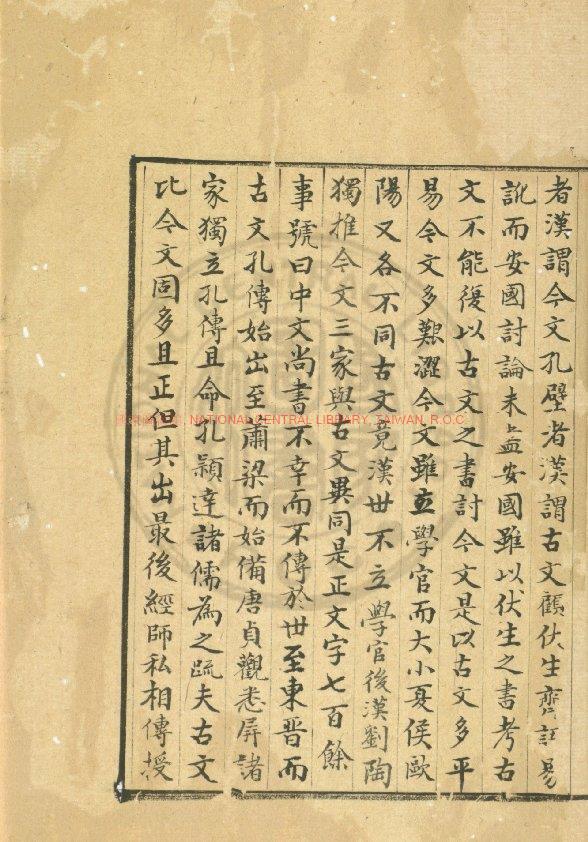 者漢謂今文孔壁者漢謂古文顧伏生齊訛易
訛而安國討論未盡安國雖以伏生之書考古
文不能復以古文之書討今文是以古文多平
易今文多艱澀今文雖立學官而大小夏侯歐
陽又各不同古文竟漢世不立學官後漢劉陶
獨推今文三家與古文異同是正文字七百餘
事號曰中文尚書不幸而不傳於世至東晉而
古文孔傳始出至肅梁而始備唐貞觀悉屏諸
家獨立孔傳且命孔穎達諸儒為之疏夫古文
比今文固多且正但其出最後經師私相傳授
NATIONAL CENTRAL LIBRARY, TAIWAN, R.O.C